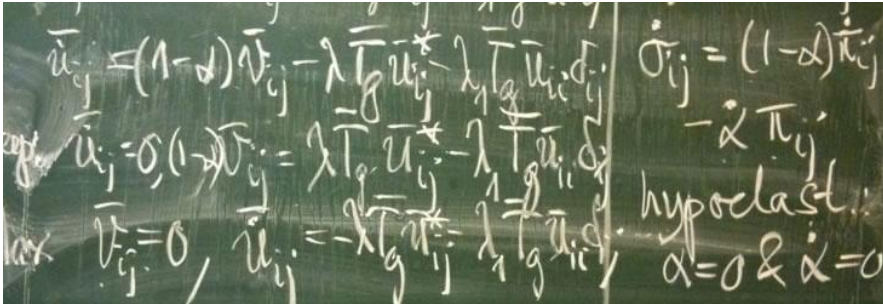 \dot{\bar{u}}_{ij} = (1-α) \bar{v}_{ij} - λ \bar{T}_g \bar{u}^*_{ij} - λ_1 \bar{T}_g \bar{u}_{ii} δ_{ij}
\dot{\bar{u}}_{ij} = 0, (1-α) \bar{v}_{ij} = λ \bar{T}_g \bar{u}^*_{ij} - λ_1 \bar{T}_g \bar{u}_{ii} δ_{ij}
\bar{v}_{ij} = 0, \dot{\bar{u}}_{ij} = -λ \bar{T}_g \bar{u}^*_{ij} - λ_1 \bar{T}_g \bar{u}_{ii} δ_{ij}
\dot{σ}_{ij} = (1-α) \dot{π}_{ij}
- \dot{α} π_{ij}
hypoelast.:
α=0 & \dot{α}=0